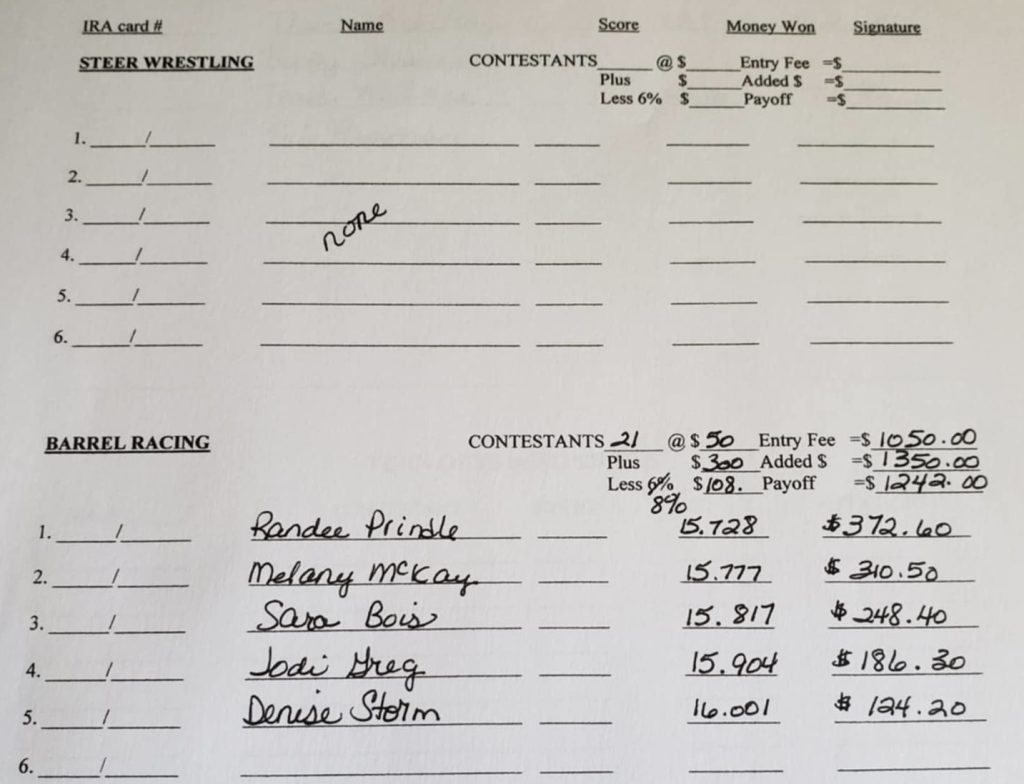 IRA card # Name Score Money Won Signature
STEER WRESTLING CONTESTANTS______ @ $______ Entry Fee =$__________
Plus $______ Added $ =$__________
Less 6% $______ Payoff =$__________
1. ______/______
2. ______/______
3. ______/______ none
4. ______/______
5. ______/______
6. ______/______
BARREL RACING CONTESTANTS 21 @ $ 50 Entry Fee =$ 1050.00
Plus $ 300 Added $ =$ 1350.00
Less 6% $108. Payoff =$ 1242.00
8%
1. ______/______ Randee Prindle 15.728 $372.60
2. ______/______ Melany McKay 15.777 $ 310.50
3. ______/______ Sara Bois 15.817 $ 248.40
4. ______/______ Jodi Greg 15.904 $ 186.30
5. ______/______ Denise Storm 16.001 $ 124.20
6. ______/______